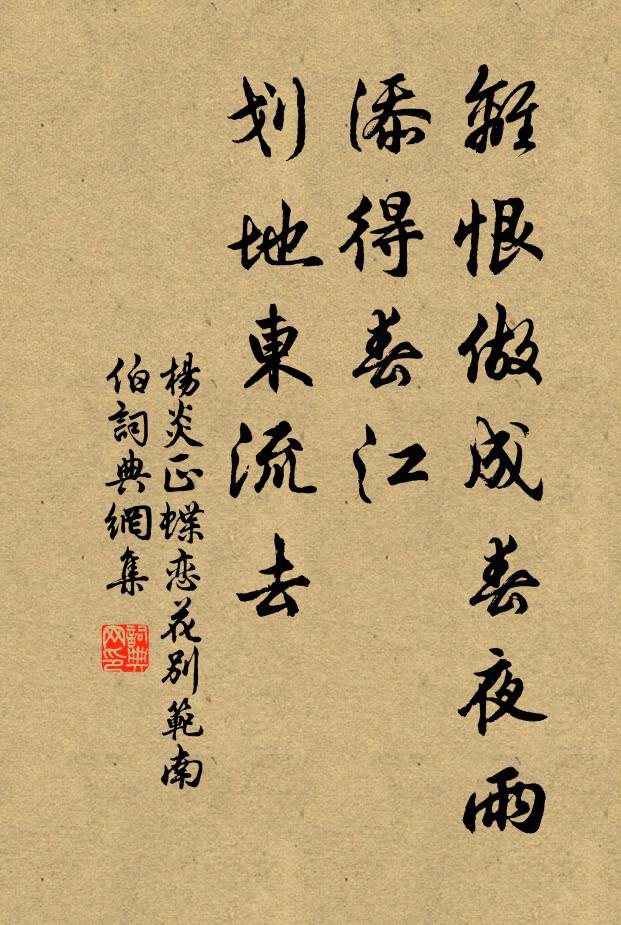 離恨做成春夜雨
添得春江
刬地東流去
楊炎正蝶恋花別範南
伯詞典網集
詞典
网印